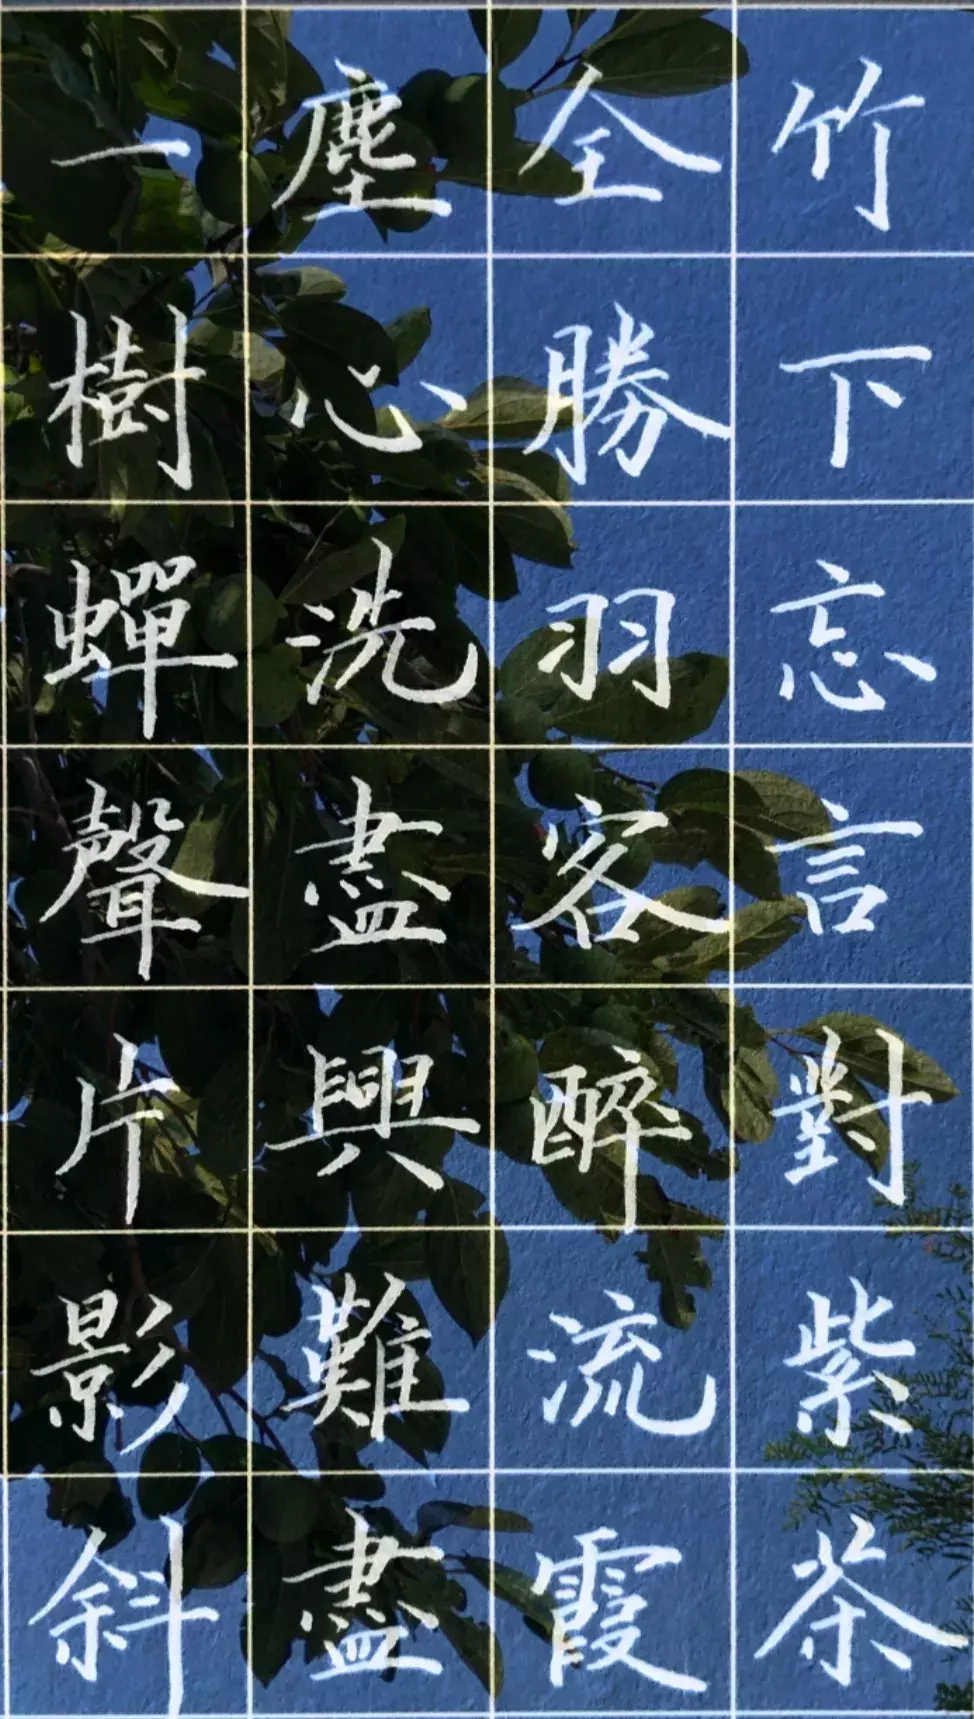 竹下忘言對紫茶
全勝羽客醉流霞
塵心洗盡興難盡
一樹蟬聲片影斜